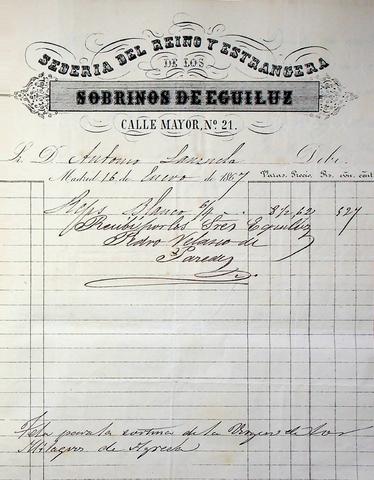 SEDERIA DEL REINO Y ESTRANGERA
DE LOS
SOBRINOS DE EGUILUZ
CALLE MAYOR, Nº. 21.
Sr. D. Antonio Debe.
Madrid 16 de Enero de 1867 Varas. Precio. Rs. cén.
Reps Blanco 6/4 8 1/2 62 527
Recibí por los Sres Eguiluz
Pedro Velasco de
Paredes
Tela para la cortina de la Virgen de los
Milagros de Agreda